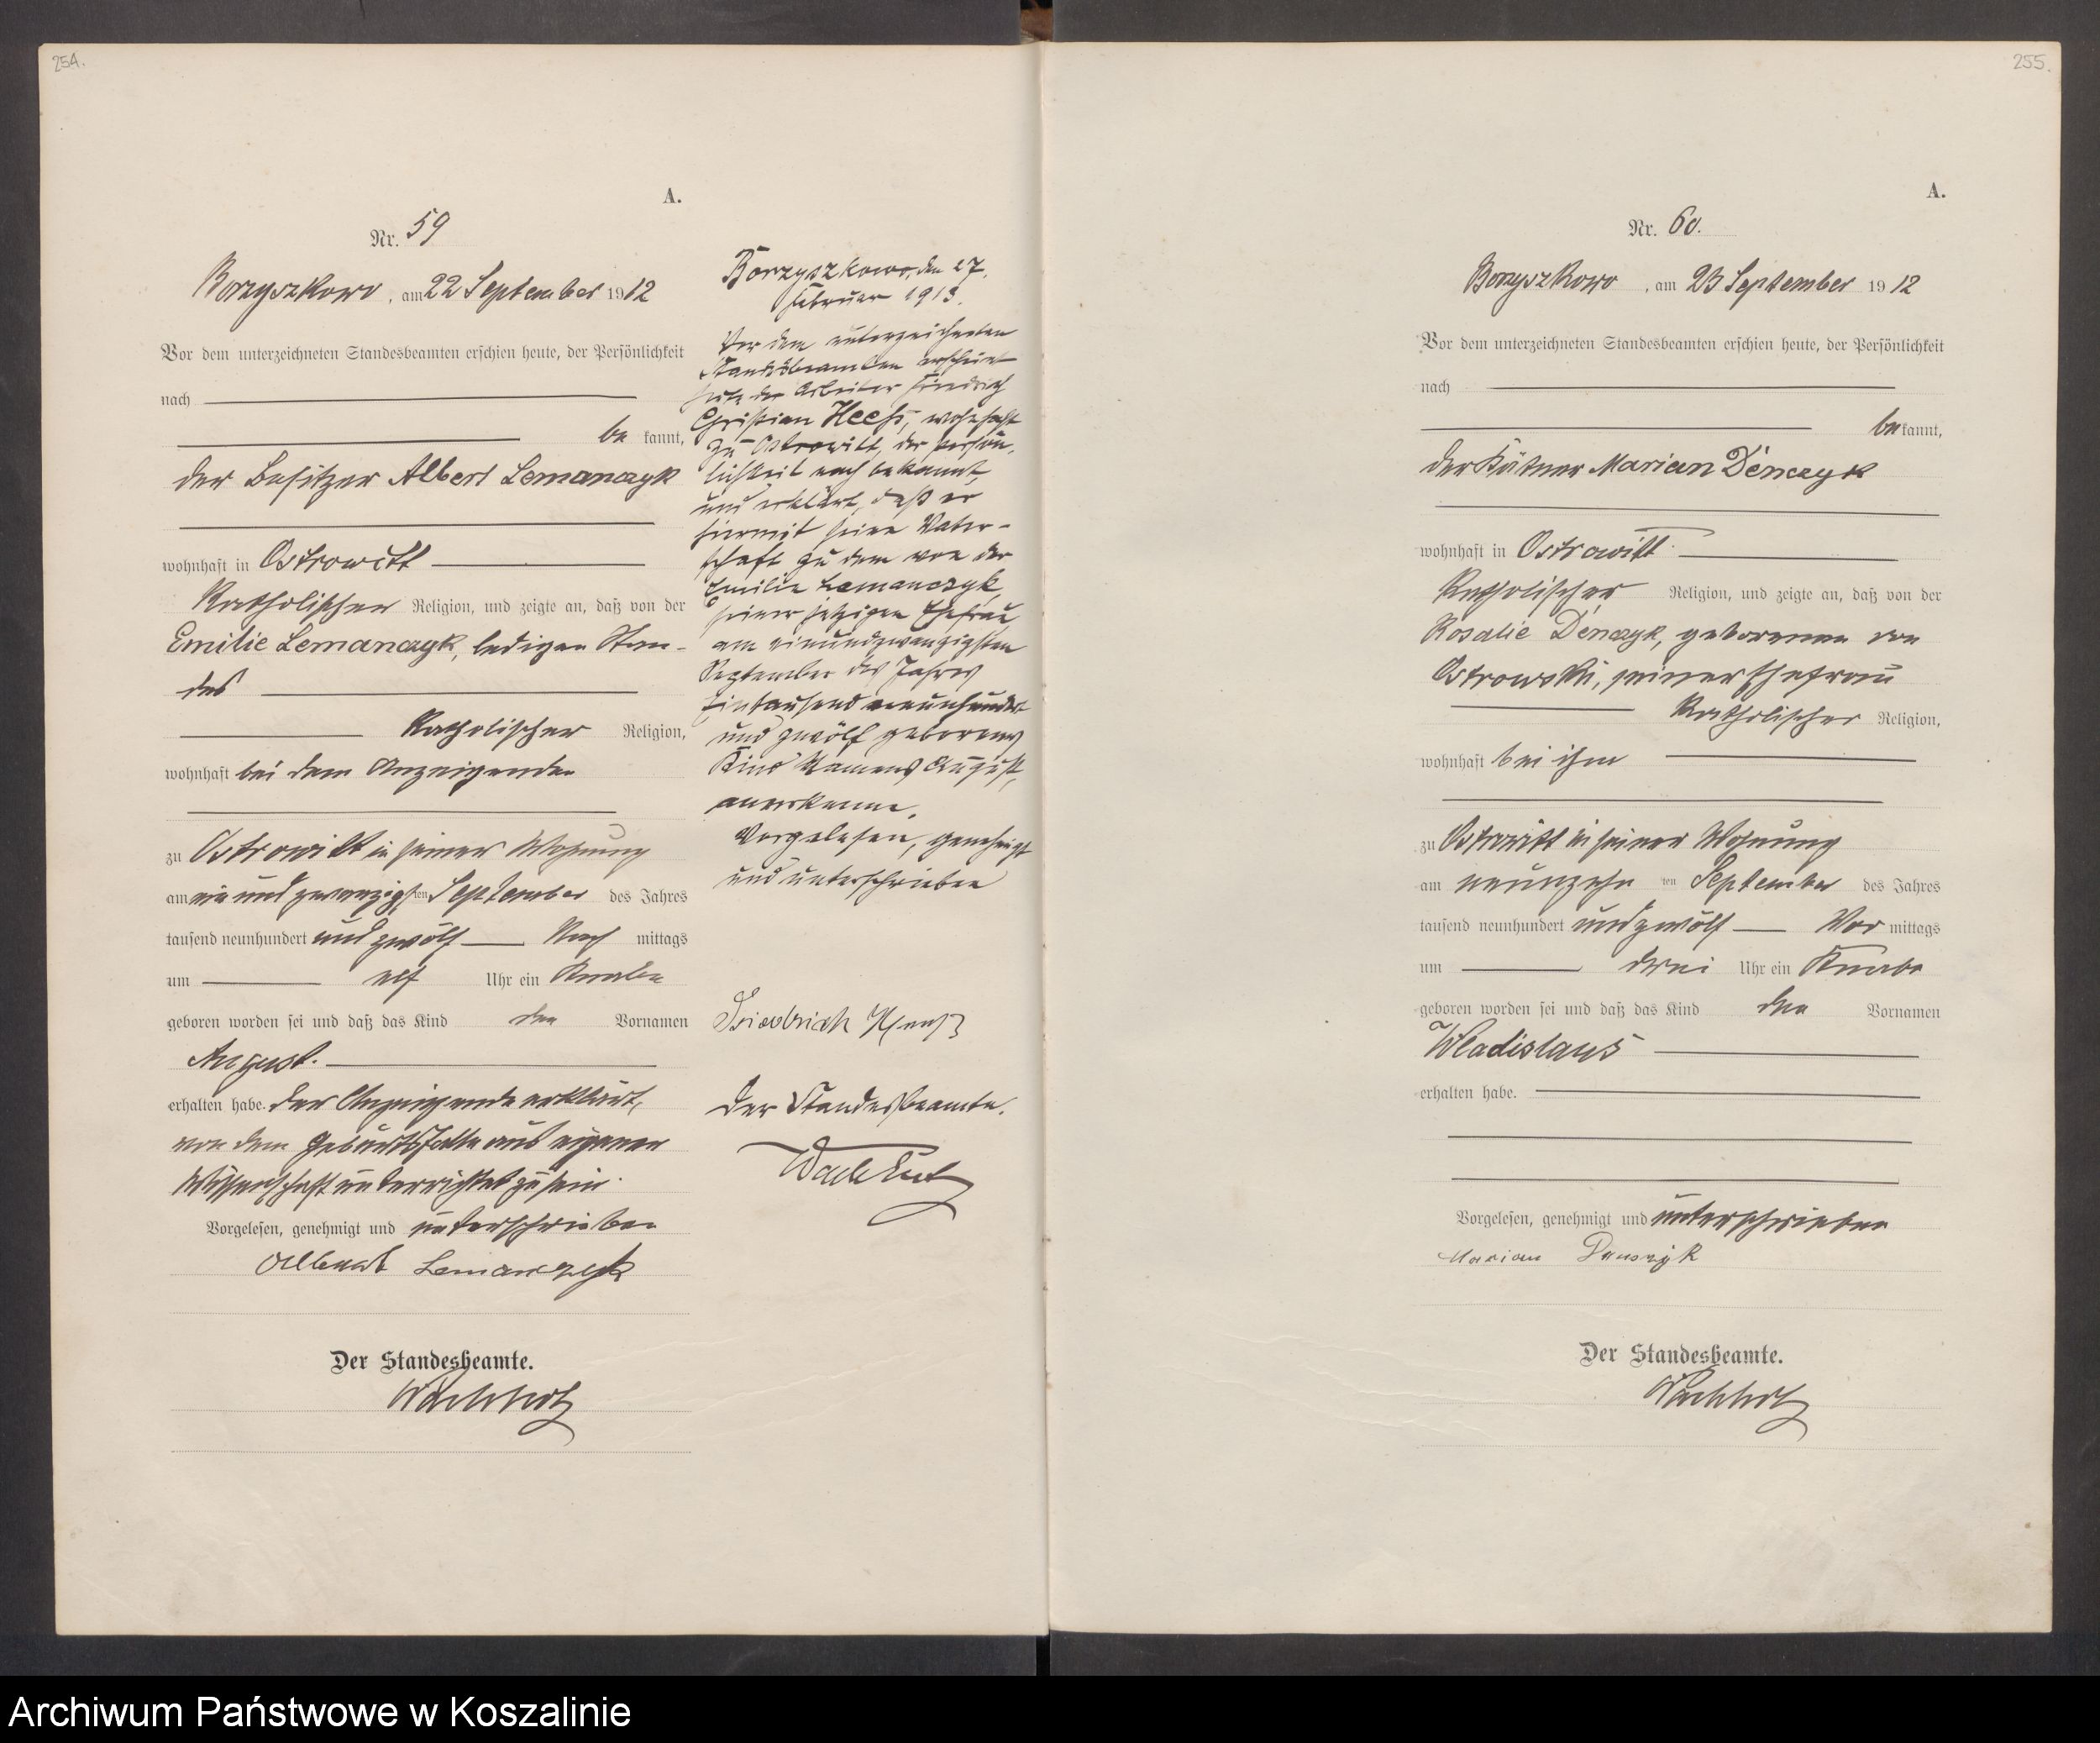 254.
A.
Nr. 59
Borzyszkowo, am 22 September 1912
Vor dem unterzeichneten Standesbeamten erschien heute, der Persönlichkeit
nach
be kannt,
der Besitzer Albert Lemanczyk
wohnhaft in Ostrowitt
Katholischer Religion, und zeigte an, daß von der
Emilie Lemanczyk, ledigen Stan-
des
Katholischer Religion,
wohnhaft bei dem Anzeigenden
zu Ostrowitt in seiner Wohnung
am ein und zwanzigsten September des Jahres
tausend neunhundert und zwölf Nach mittags
um elf Uhr ein Knabe
geboren worden sei und daß das Kind den Vornamen
August.
erhalten habe. Der Anzeigende erklärt,
von dem Geburtsfalle aus eigener
Wissenschaft unterrichtet zu sein.
Vorgelesen, genehmigt und unterschrieben
Albert Lemanczyk
Der Standesbeamte.
Wachholz
Borzyszkowo, den 27.
Februar 1913.
Vor dem unterzeichneten
Standesbeamten erscheint
heute der Arbeiter Friedrich
Christian, wohnhaft
zu Ostrowitt, der Persön-
lichkeit nach bekannt,
und erklärt, daß er
hiermit seine Vater-
schaft zu dem von der
Emilie Lemanczyk,
seiner jetzigen Ehefrau
am einundzwanzigsten
September des Jahres
Eintausend neunhundert
und zwölf geborenes
Kind Namens August,
anerkenne.
Vorgelesen, genehmigt
und unterschrieben
Friedrich
Der Standesbeamte.
Wachholz
255.
A.
Nr. 60.
Borzyszkowo, am 23 September 1912
Vor dem unterzeichneten Standesbeamten erschien heute, der Persönlichkeit
nach
be kannt,
der Kätner Marian Dènczyk
wohnhaft in Ostrowitt
Katholischer Religion, und zeigte an, daß von der
Rosalie Dènczyk, geborenen von
Ostrowski, seiner Ehefrau
Katholischer Religion,
wohnhaft bei ihm
zu Ostrowitt in seiner Wohnung
am neunzehn ten September des Jahres
tausend neunhundert und zwölf Vor mittags
um drei Uhr ein Knabe
geboren worden sei und daß das Kind den Vornamen
Wladislaus
erhalten habe.
Vorgelesen, genehmigt und unterschrieben
Marian
Der Standesbeamte.
Wachholz
Archiwum Państwowe w Koszalinie